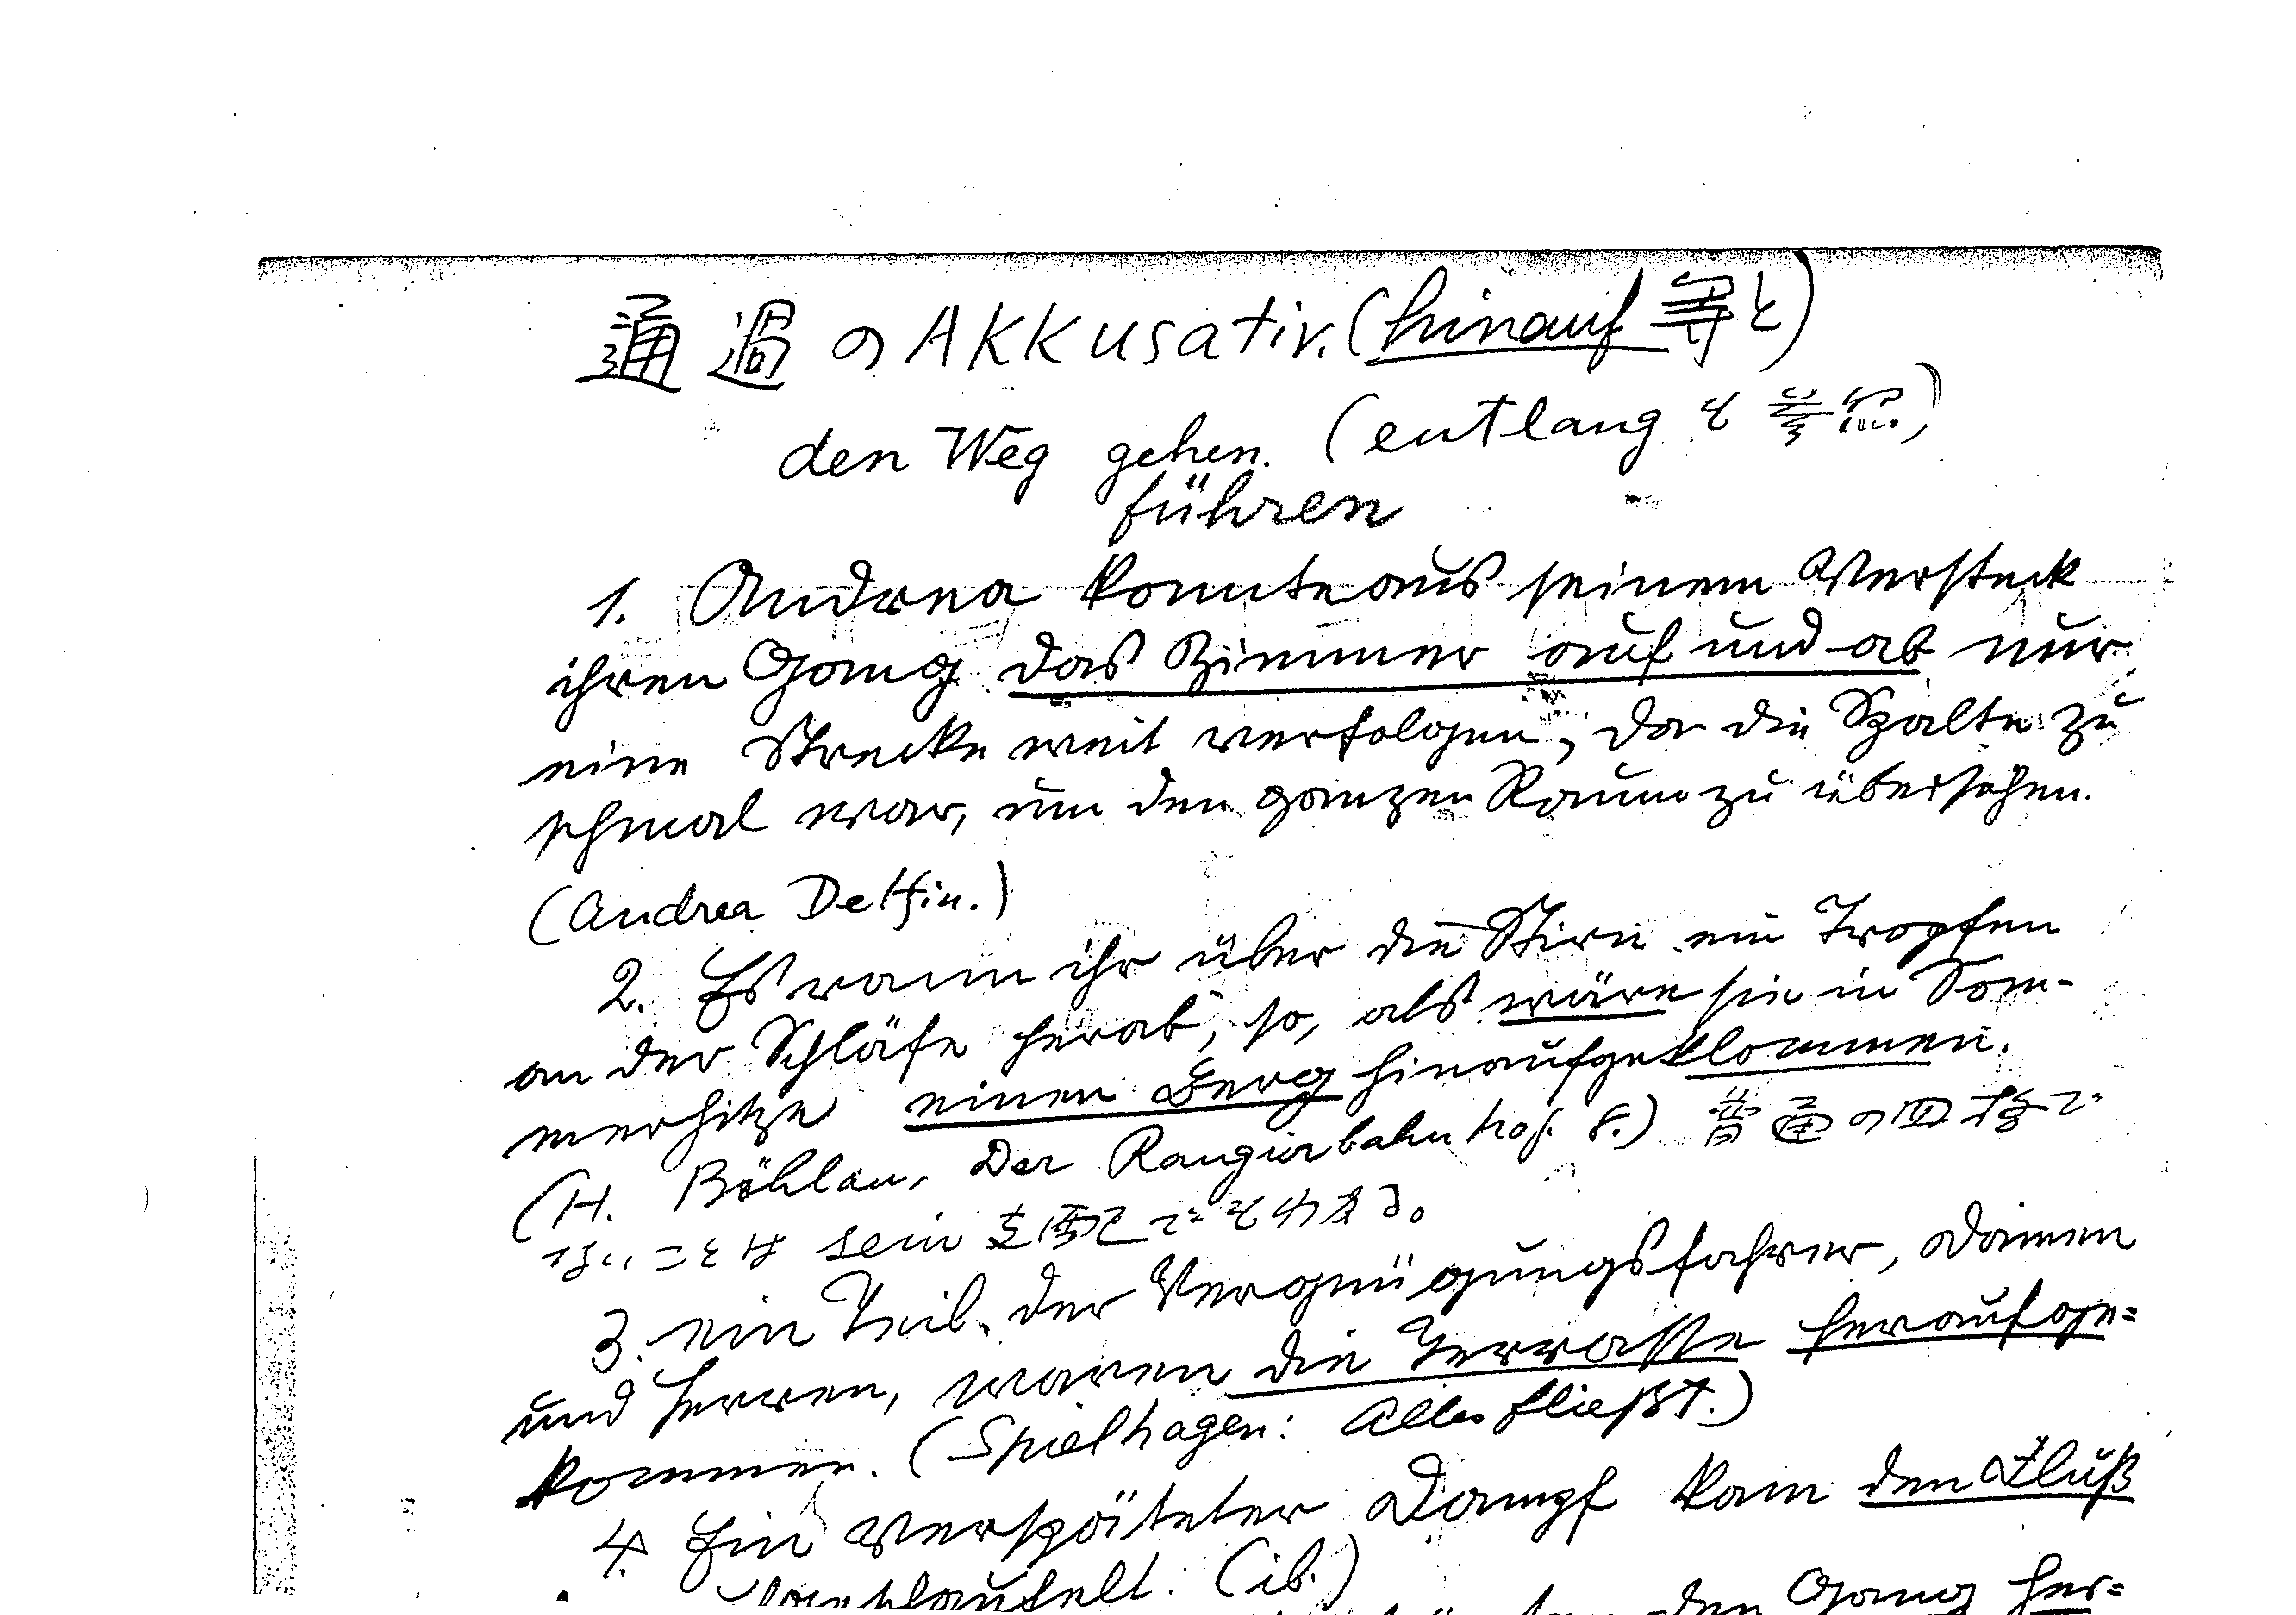 通過の Akkusativ. (hinauf 等と)
den Weg gehen. (entlang も参照)
führen
1. Andrea konnte aus seinem Versteck
ihren Gang das Zimmer auf und ab nur
eine Strecke weit verfolgen, da die Spalte zu
schmal war, um den ganzen Raum zu übersehen.
(Andrea Delfin.)
2. Es rann ihr über die Stirn ein Tropfen
an der Schläfe herab, so, als wäre sie in Som-
merhitze einen Berg hinaufgeklommen.
(H. Böhlau, Der Rangierbahnhof. 8.) 普通の四格で
ないことは sein 支配でもわかる。
3. ein Teil der Vergnügungsfahrer, Damen
und Herren, waren die Terrasse heraufge=
kommen. (Spielhagen: Alles fließt.)
4. Ein verspäteter Dampf kam den Fluß
(ib.)
den Gang her=